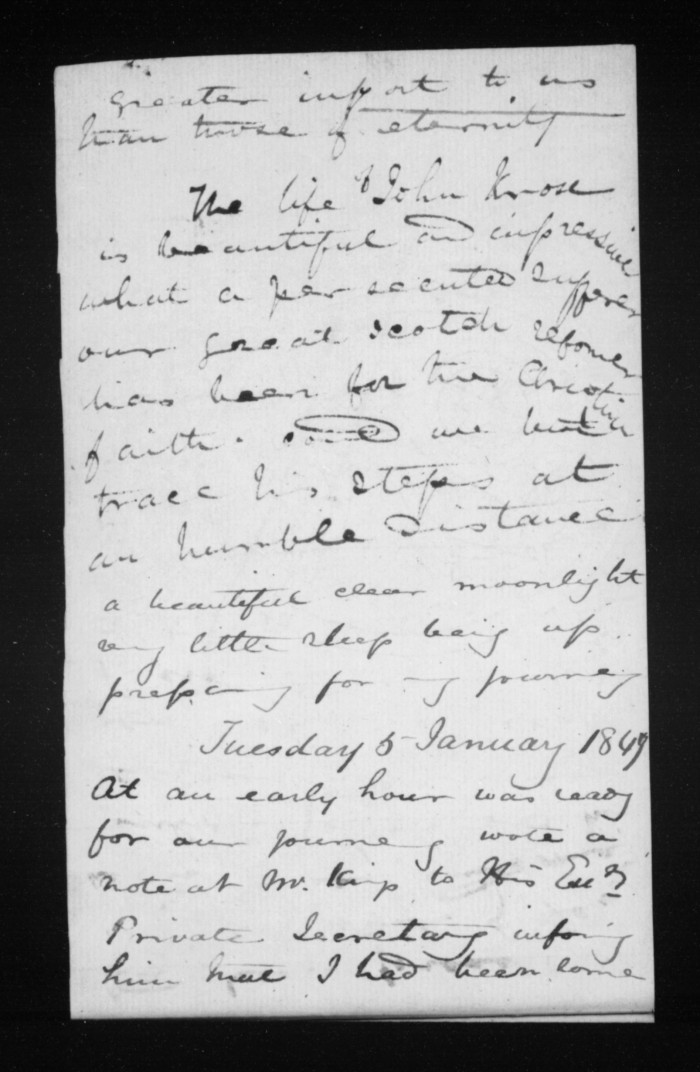 greater import to us
than those of eternity
The life of John Knox
is beautiful and impressive
what a persecuted sufferer
our great Scotch reformer
has been for the Christian
faith. and we but
trace his steps at
an humble distance
a beautiful clear moonlight
very little sleep being up
preparing for my journey
Tuesday 5 January 1849
At an early hour was ready
for our journey wrote a
note at Mr. Kings to His Excy
Private Secretary informing
him that I had been some